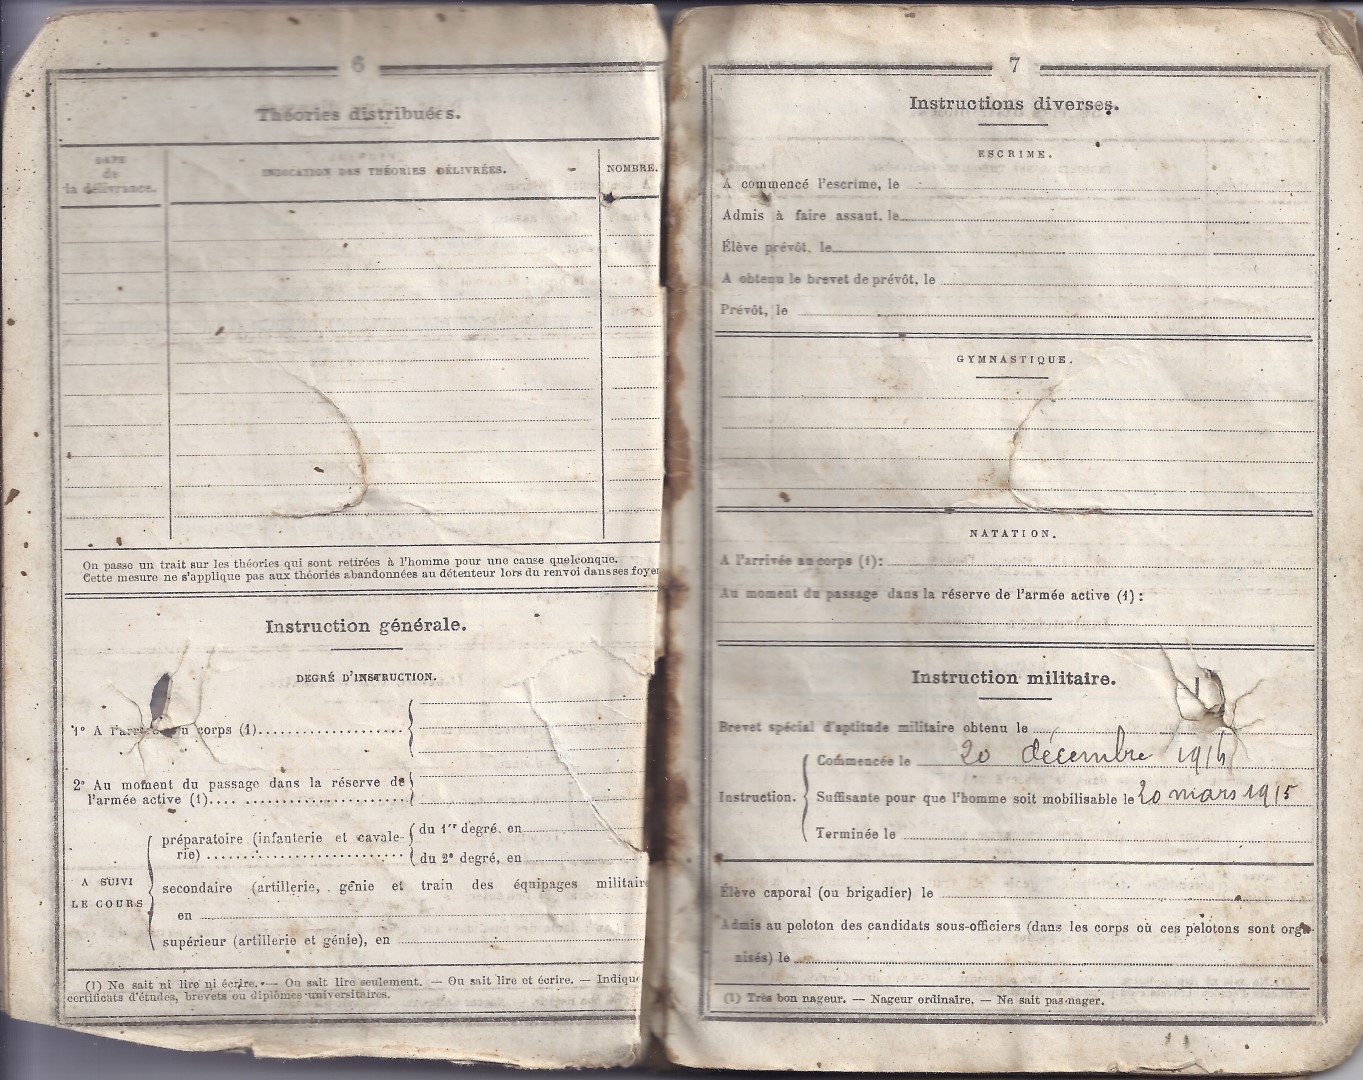 6
Théories distribuées.
DATE
de
la délivrance.
INDICATION DES THÉORIES DÉLIVRÉES.
NOMBRE.
On passe un trait sur les théories qui sont retirées à l'homme pour une cause quelconque.
Cette mesure ne s'applique pas aux théories abandonnées au détenteur lors du renvoi dans ses foyer
Instruction générale.
DEGRÉ D'INSTRUCTION.
1° A l'arrivée au corps (1)
2° Au moment du passage dans la réserve de
l'armée active (1)
A SUIVI
LE COURS
préparatoire (infanterie et cavale-
rie)
du 1er degré, en
du 2e degré, en
secondaire (artillerie, génie et train des équipages militair
en
supérieur (artillerie et génie), en
(1) Ne sait ni lire ni écrire. — On sait lire seulement. — Ou sait lire et écrire. — Indique
certificats d'études, brevets ou diplômes universitaires.
7
Instructions diverses.
ESCRIME.
A commencé l'escrime, le
Admis à faire assaut, le
Élève prévôt, le
A obtenu le brevet de prévôt, le
Prévôt, le
GYMNASTIQUE.
NATATION.
A l'arrivée au corps (1):
Au moment du passage dans la réserve de l'armée active (1) :
Instruction militaire.
Brevet spécial d'aptitude militaire obtenu le
Instruction.
Commencée le 20 décembre 1914
Suffisante pour que l'homme soit mobilisable le 20 mars 1915
Terminée le
Élève caporal (ou brigadier) le
Admis au peloton des candidats sous-officiers (dans les corps où ces pelotons sont orga-
nisés) le
(1) Très bon nageur. — Nageur ordinaire. — Ne sait pas nager.